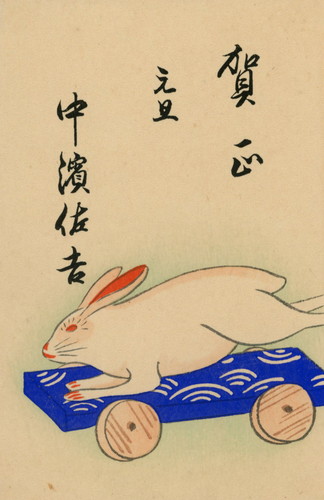 賀正
元旦
中濱佐吉